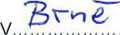 v Brně